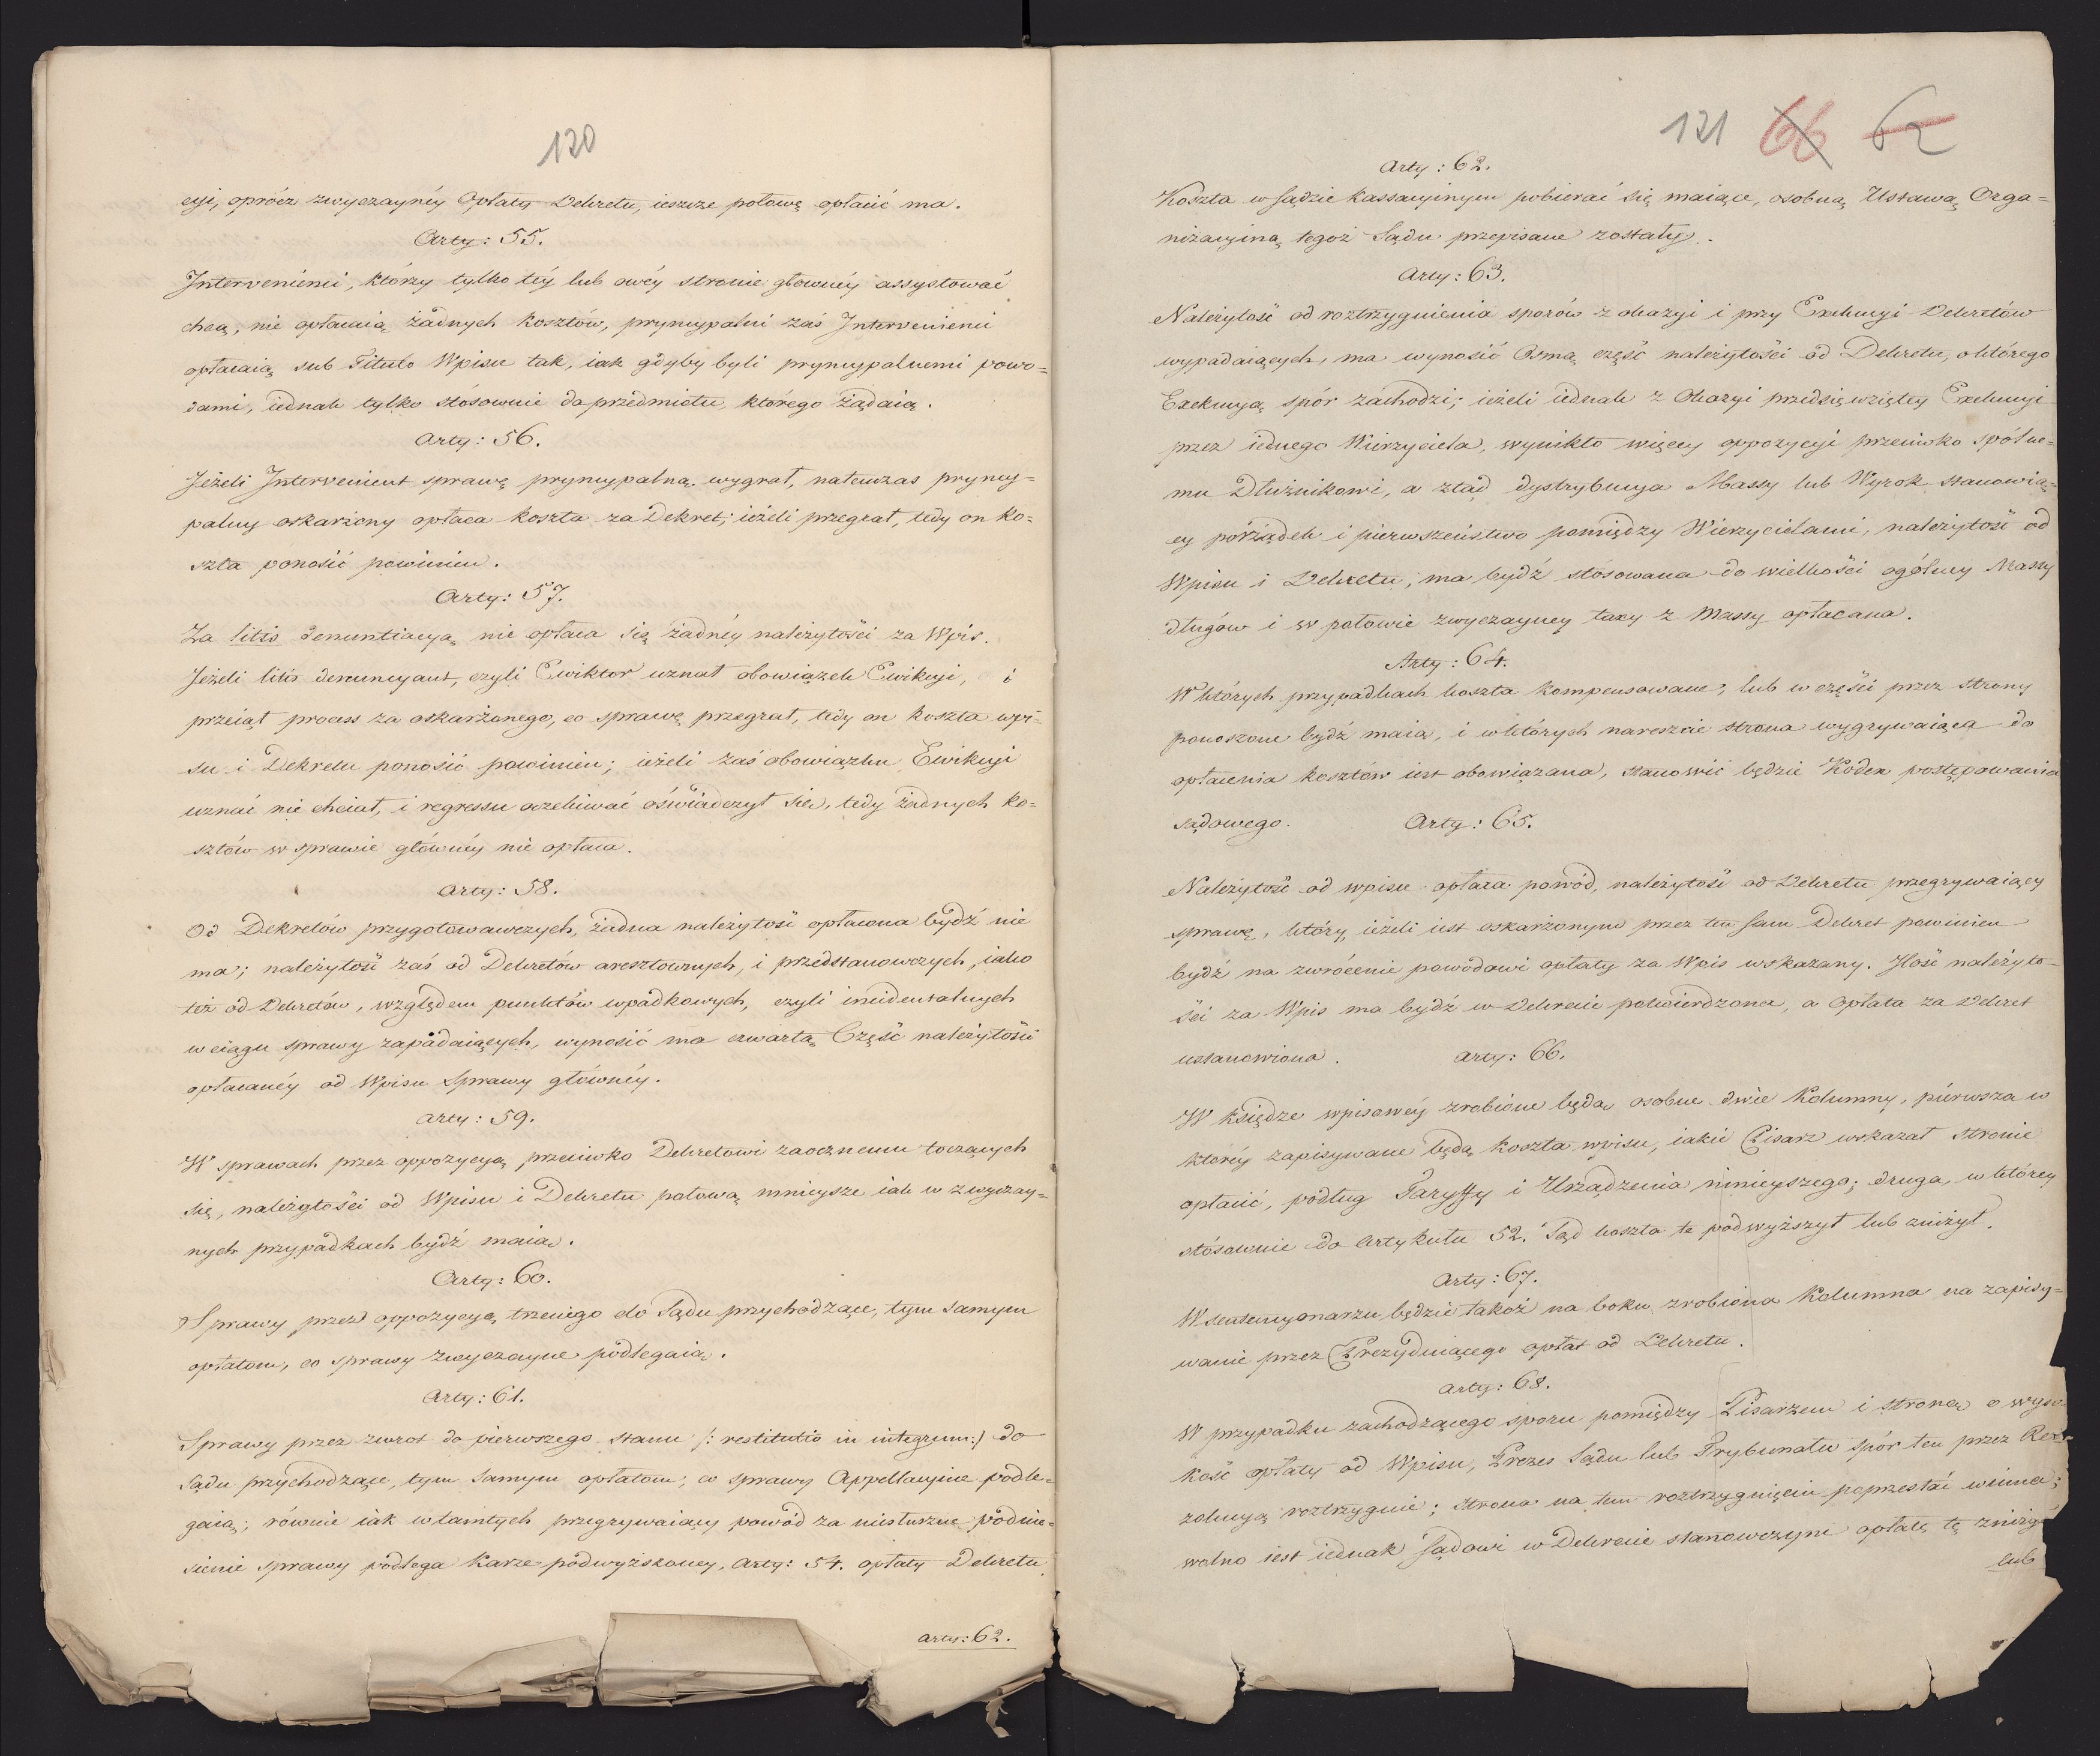 120
cyi, oprócz zwyczaynéy Opłaty Dekretu, ieszcze połowę opłacić ma.
Arty: 55.
Intervenienci, którzy tylko téy lub owéy stronie głownéy assystować
chcą, nie opłacaią żadnych kosztów, pryncypalni zaś Intervenienci
opłacaią sub Titulo Wpisu tak, iak gdyby byli pryncypalnemi powo=
dami, iednak tylko stósownie do przedmiotu, którego żądaią.
Arty: 56.
Jeżeli Intervenient sprawę pryncypalną wygrał, natenczas pryncy=
palny oskarżony opłaca koszta za Dekret; ieżeli przegrał, tedy on ko=
szta ponosić powinien.
Arty: 57.
Za litis denuntiacyą nie opłaca się żadnéy należytości za Wpis.
Jeżeli litis denuncyant, czyli Ewiktor uznał obowiązek Ewikcyi, i
przeiął process za oskarżonego, co sprawę przegrał, tedy on koszta wpi=
su i Dekretu ponosić powinien; ieżeli zaś obowiązku Ewikcyi
uznać nie chciał, i regressu oczekiwać oświadczył się, tedy żadnych ko=
sztów w sprawie głównéy nie opłaca.
Arty: 58.
Od Dekretów przygotowawczych, żadna należytość opłacona bydź nie
ma; należytość zaś od Dekretów aresztownych, i przedstanowczych, iako
też od Dekretów, względem punktów wpadkowych, czyli incidentalnych
w ciągu sprawy zapadaiących, wynosić ma czwartą Część należytości
opłacanéy od Wpisu Sprawy głównéy.
Arty: 59.
W sprawach przez oppozycyą przeciwko Dekretowi zaocznemu toczących
się, należytości od Wpisu i Dekretu połową mnieysze iak w zwyczay=
nych przypadkach bydź maią.
Arty: 60.
Sprawy przez oppozycyą trzeciego do Sądu przychodzące, tym samym
opłatom, co sprawy zwyczayne podlegaią.
Arty: 61.
Sprawy przez zwrot do pierwszego stanu /: restitutio in integrum:/ do
Sądu przychodzące, tym samym opłatom, co sprawy Appellacyine podle=
gaią; równie iak w tamtych przegrywaiący powód za niesłuszne podnie=
sienie sprawy podlega Karze podwyżskoney, Arty: 54. opłaty Dekretu.
Arty: 62.
121 66 62
Arty: 62.
Koszta w Sądzie Kassacyinym pobierać się maiące, osobną Ustawą Orga=
nizacyiną tegoż Sądu przepisane zostały.
Arty: 63.
Należytość od roztrzygnienia sporów z okazyi i przy Exekucyi Dekretów
wypadaiących, ma wynosić Osmą część należytości od Dekretu, o którego
Exekucyą spór zachodzi; ieżeli iednak z Okazyi przedsięwziętey Exekucyi
przez iednego Wierzyciela, wynikło więcey oppozycyi przeciwko spólne=
mu Dłużnikowi, a ztąd dystrybucya Massy lub Wyrok stanowią=
cy porządek i pierwszeństwo pomiędzy Wierzycielami, należytość od
Wpisu i Dekretu, ma bydź stosowana do wielkości ogólney Massy
długów i w połowie zwyczayney taxy z Massy opłacana.
Arty: 64.
W których przypadkach koszta kompensowane, lub w części przez strony
ponoszone bydź maią, i w których nareszcie strona wygrywaiąca do
opłacenia kosztów iest obowiązana, stanowić będzie Kodex postępowania
sądowego. Arty: 65.
Należytość od wpisu opłaca powód, należytość od Dekretu przegrywaiący
sprawę, który, ieżeli iest oskarżonym przez ten sam Dekret powinien
bydź na zwrócenie powodowi opłaty za Wpis wskazany. Ilość należyto=
ści za Wpis ma bydź w Dekrecie potwierdzona, a Opłata za Dekret
ustanowiona. Arty: 66.
W księdze wpisowéy zrobione będą osobne dwie Kolumny, piérwsza w
któréy zapisywane będą koszta wpisu, iakie Pisarz wskazał stronie
opłacić, podług Taryffy i Urządzenia ninieyszego; druga, w którey
stósownie do Artykułu 52. Sąd koszta te podwyższył lub zniżył.
Arty: 67.
W sentencyonarzu będzie takoż na boku zrobiona Kolumna na zapisy=
wanie przez Prezyduiącego opłat od Dekretu.
Arty: 68.
W przypadku zachodzącego sporu pomiędzy Pisarzem i stroną o wyso=
kość opłaty od Wpisu, Prezes Sądu lub Trybunału spór ten przez Re=
zolucyą roztrzygnie; strona na tem roztrzygnięciu poprzestać winna;
wolno iest iednak Sądowi w Dekrecie stanowczym opłatę tę zniży
lub